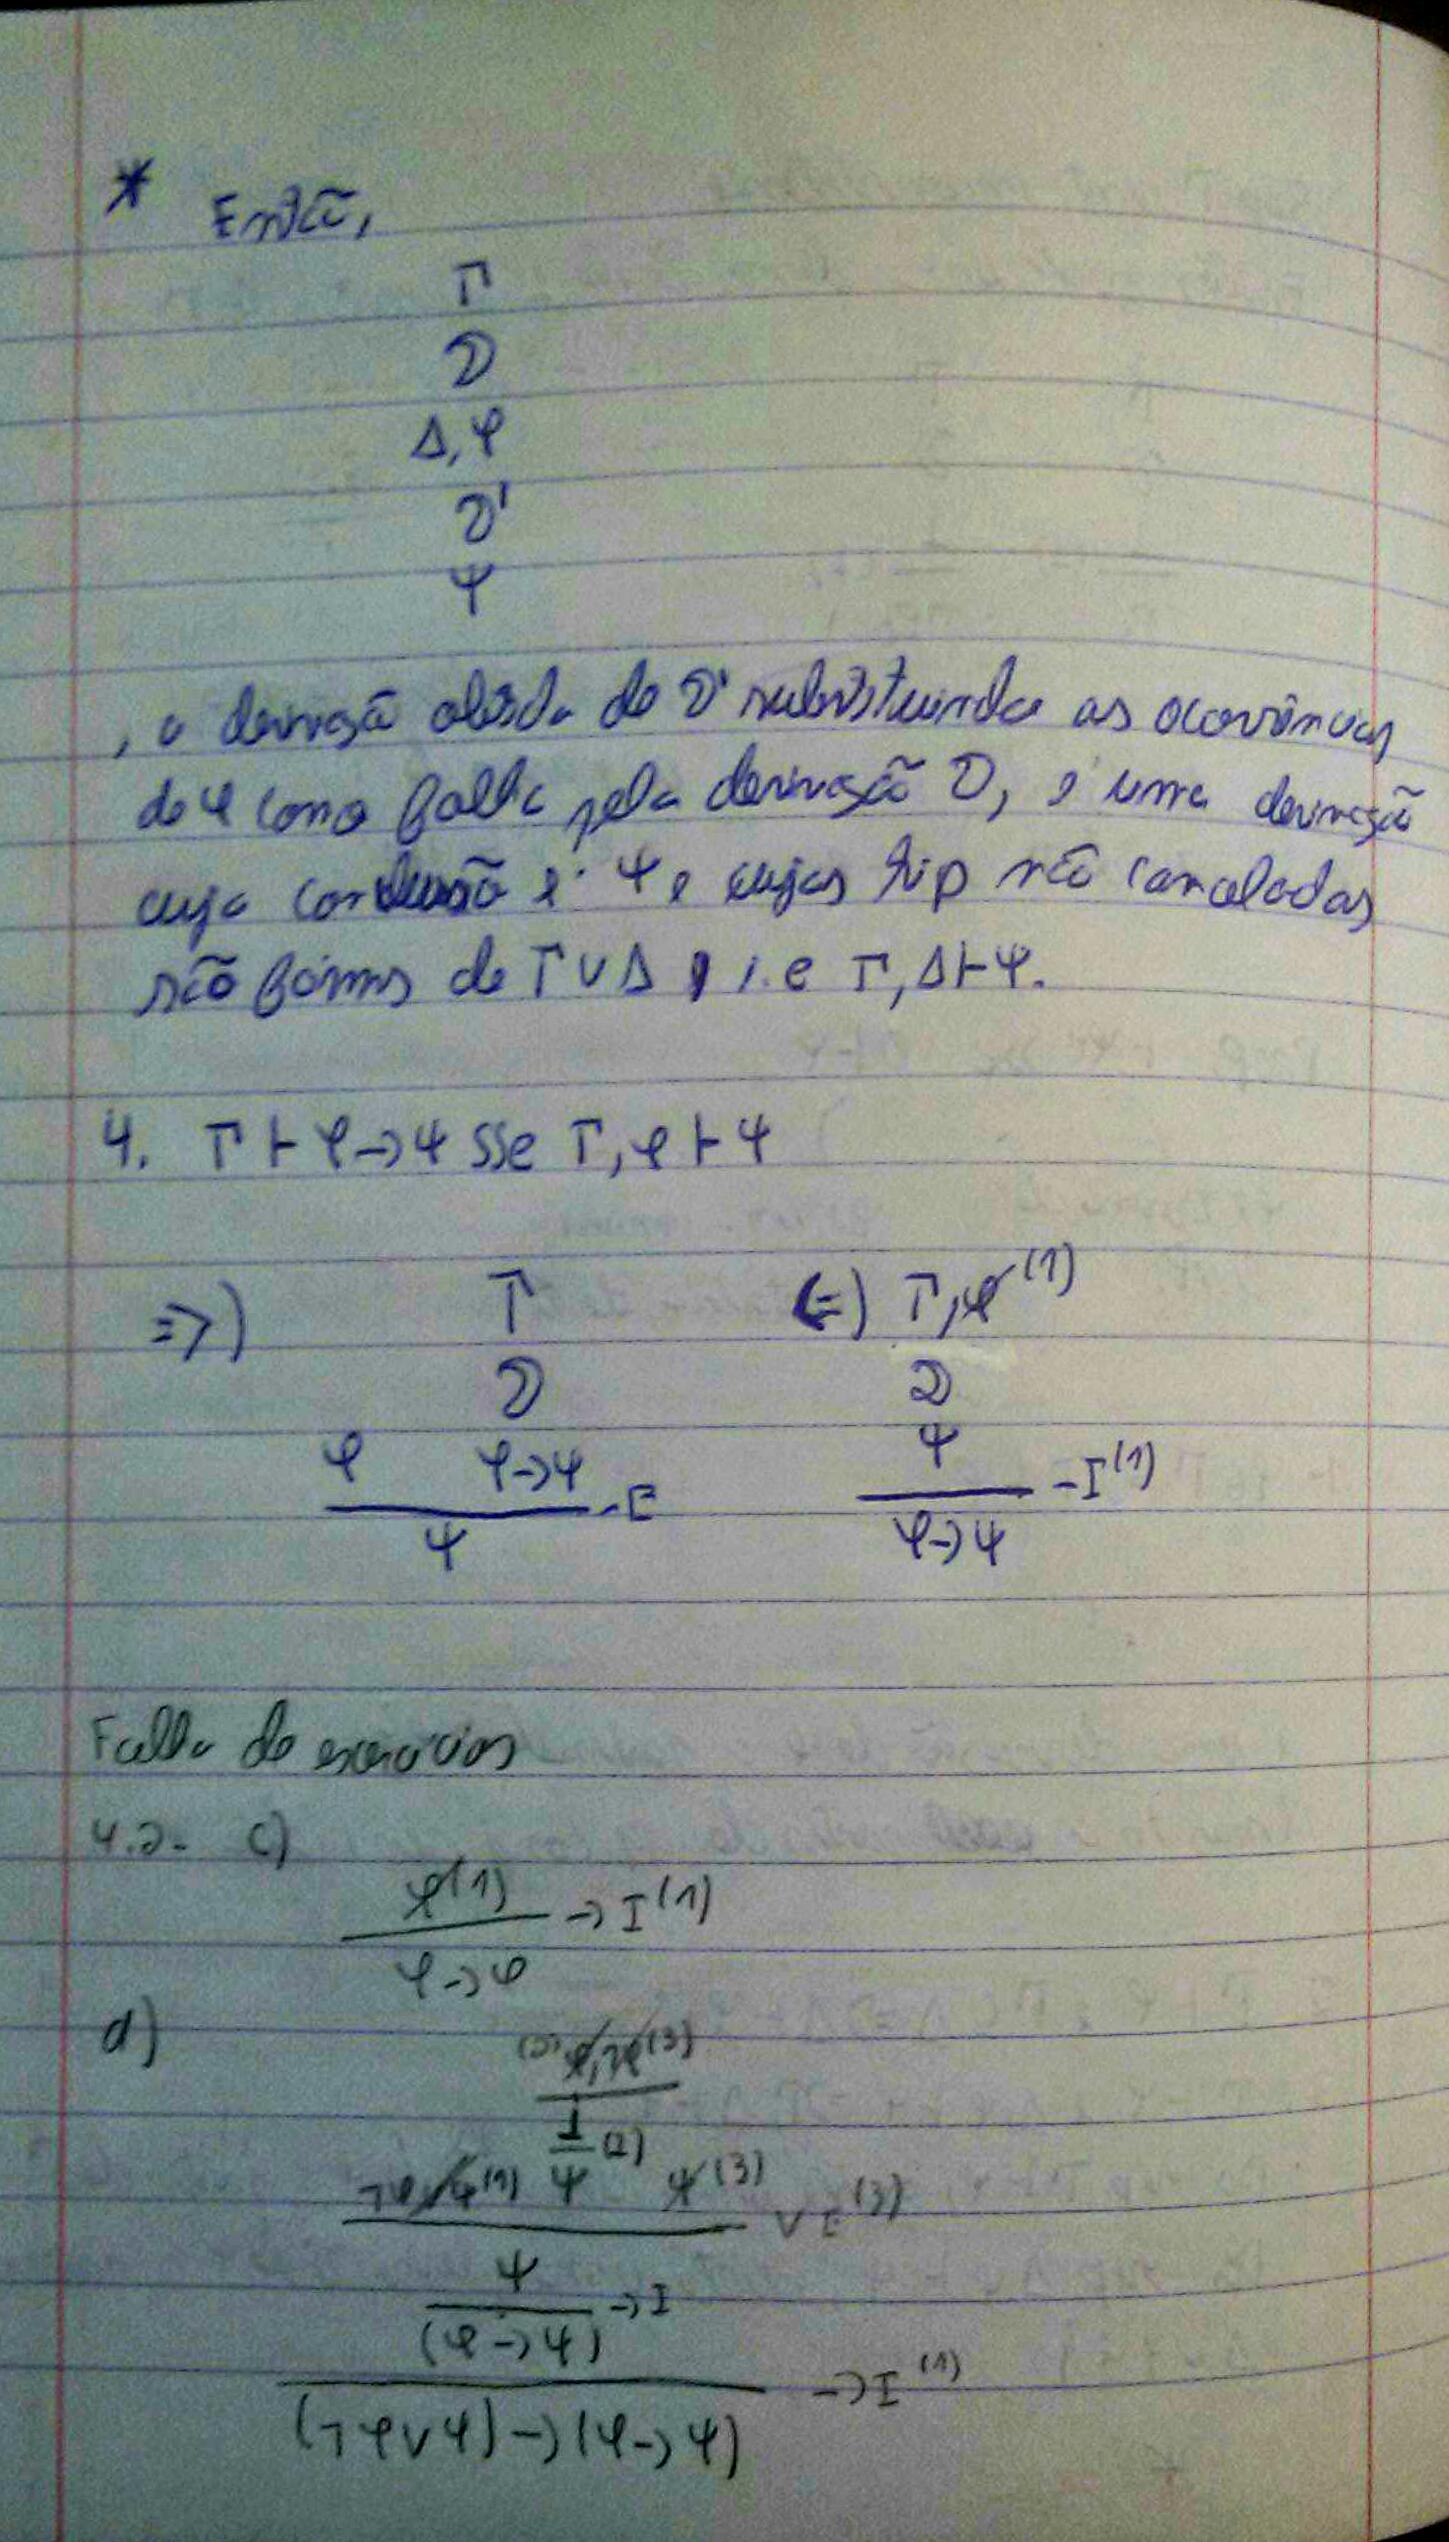 * Então,
Γ
D
Δ, φ
D'
ψ
, a derivação obtida de D' substituindo as ocorrências
de φ como folha pela derivação D, é uma derivação
cuja conclusão é ψ e cujas hip não canceladas
são fórms de Γ ∪ Δ, i.e Γ, Δ ⊢ ψ.
4. Γ ⊢ φ → ψ sse Γ, φ ⊢ ψ
=>) Γ (=) Γ, φ (1)
D D
φ φ → ψ -E ψ -I (1)
ψ φ → ψ
Folha de exercícios
4.2- c)
φ (1) → I (1)
φ → φ
d)
(2) φ, ¬φ (3)
⊥ (2)
¬φ ∨ ψ (1) ψ ψ (3) ∨E (3)
ψ → I
(φ → ψ) → I (1)
(¬φ ∨ ψ) → (φ → ψ)